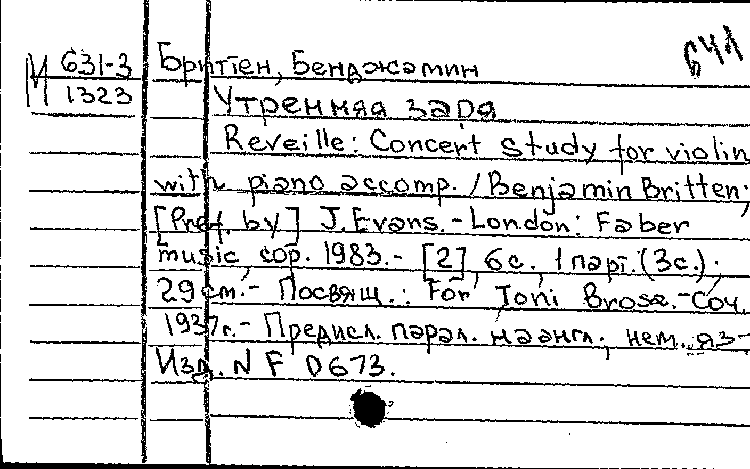 641
М 631-3 Бриттен, Бенджамин
1323 Утренняя заря
Reveille: Concert study for violin
with piano accomp. / Benjamin Britten;
[Pref. by] J. Evans. - London: Faber
music, cop. 1983. - [2], 6 с., 1 парт. (3 с.);
29 см. - Посвящ.: For Toni Brosa. - Соч.
1937 г. - Предисл. парал. на англ., нем. яз -
Изд. N F 0673.